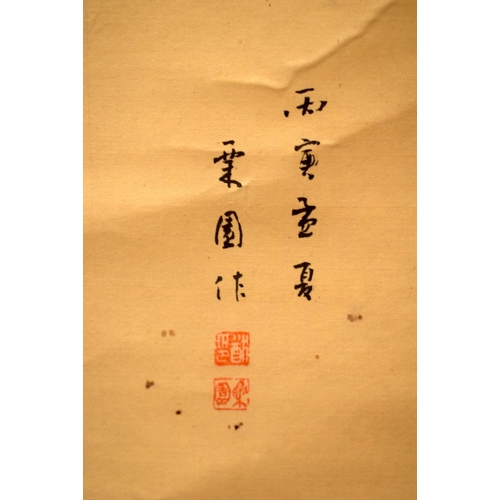 丙寅孟夏
栗園作